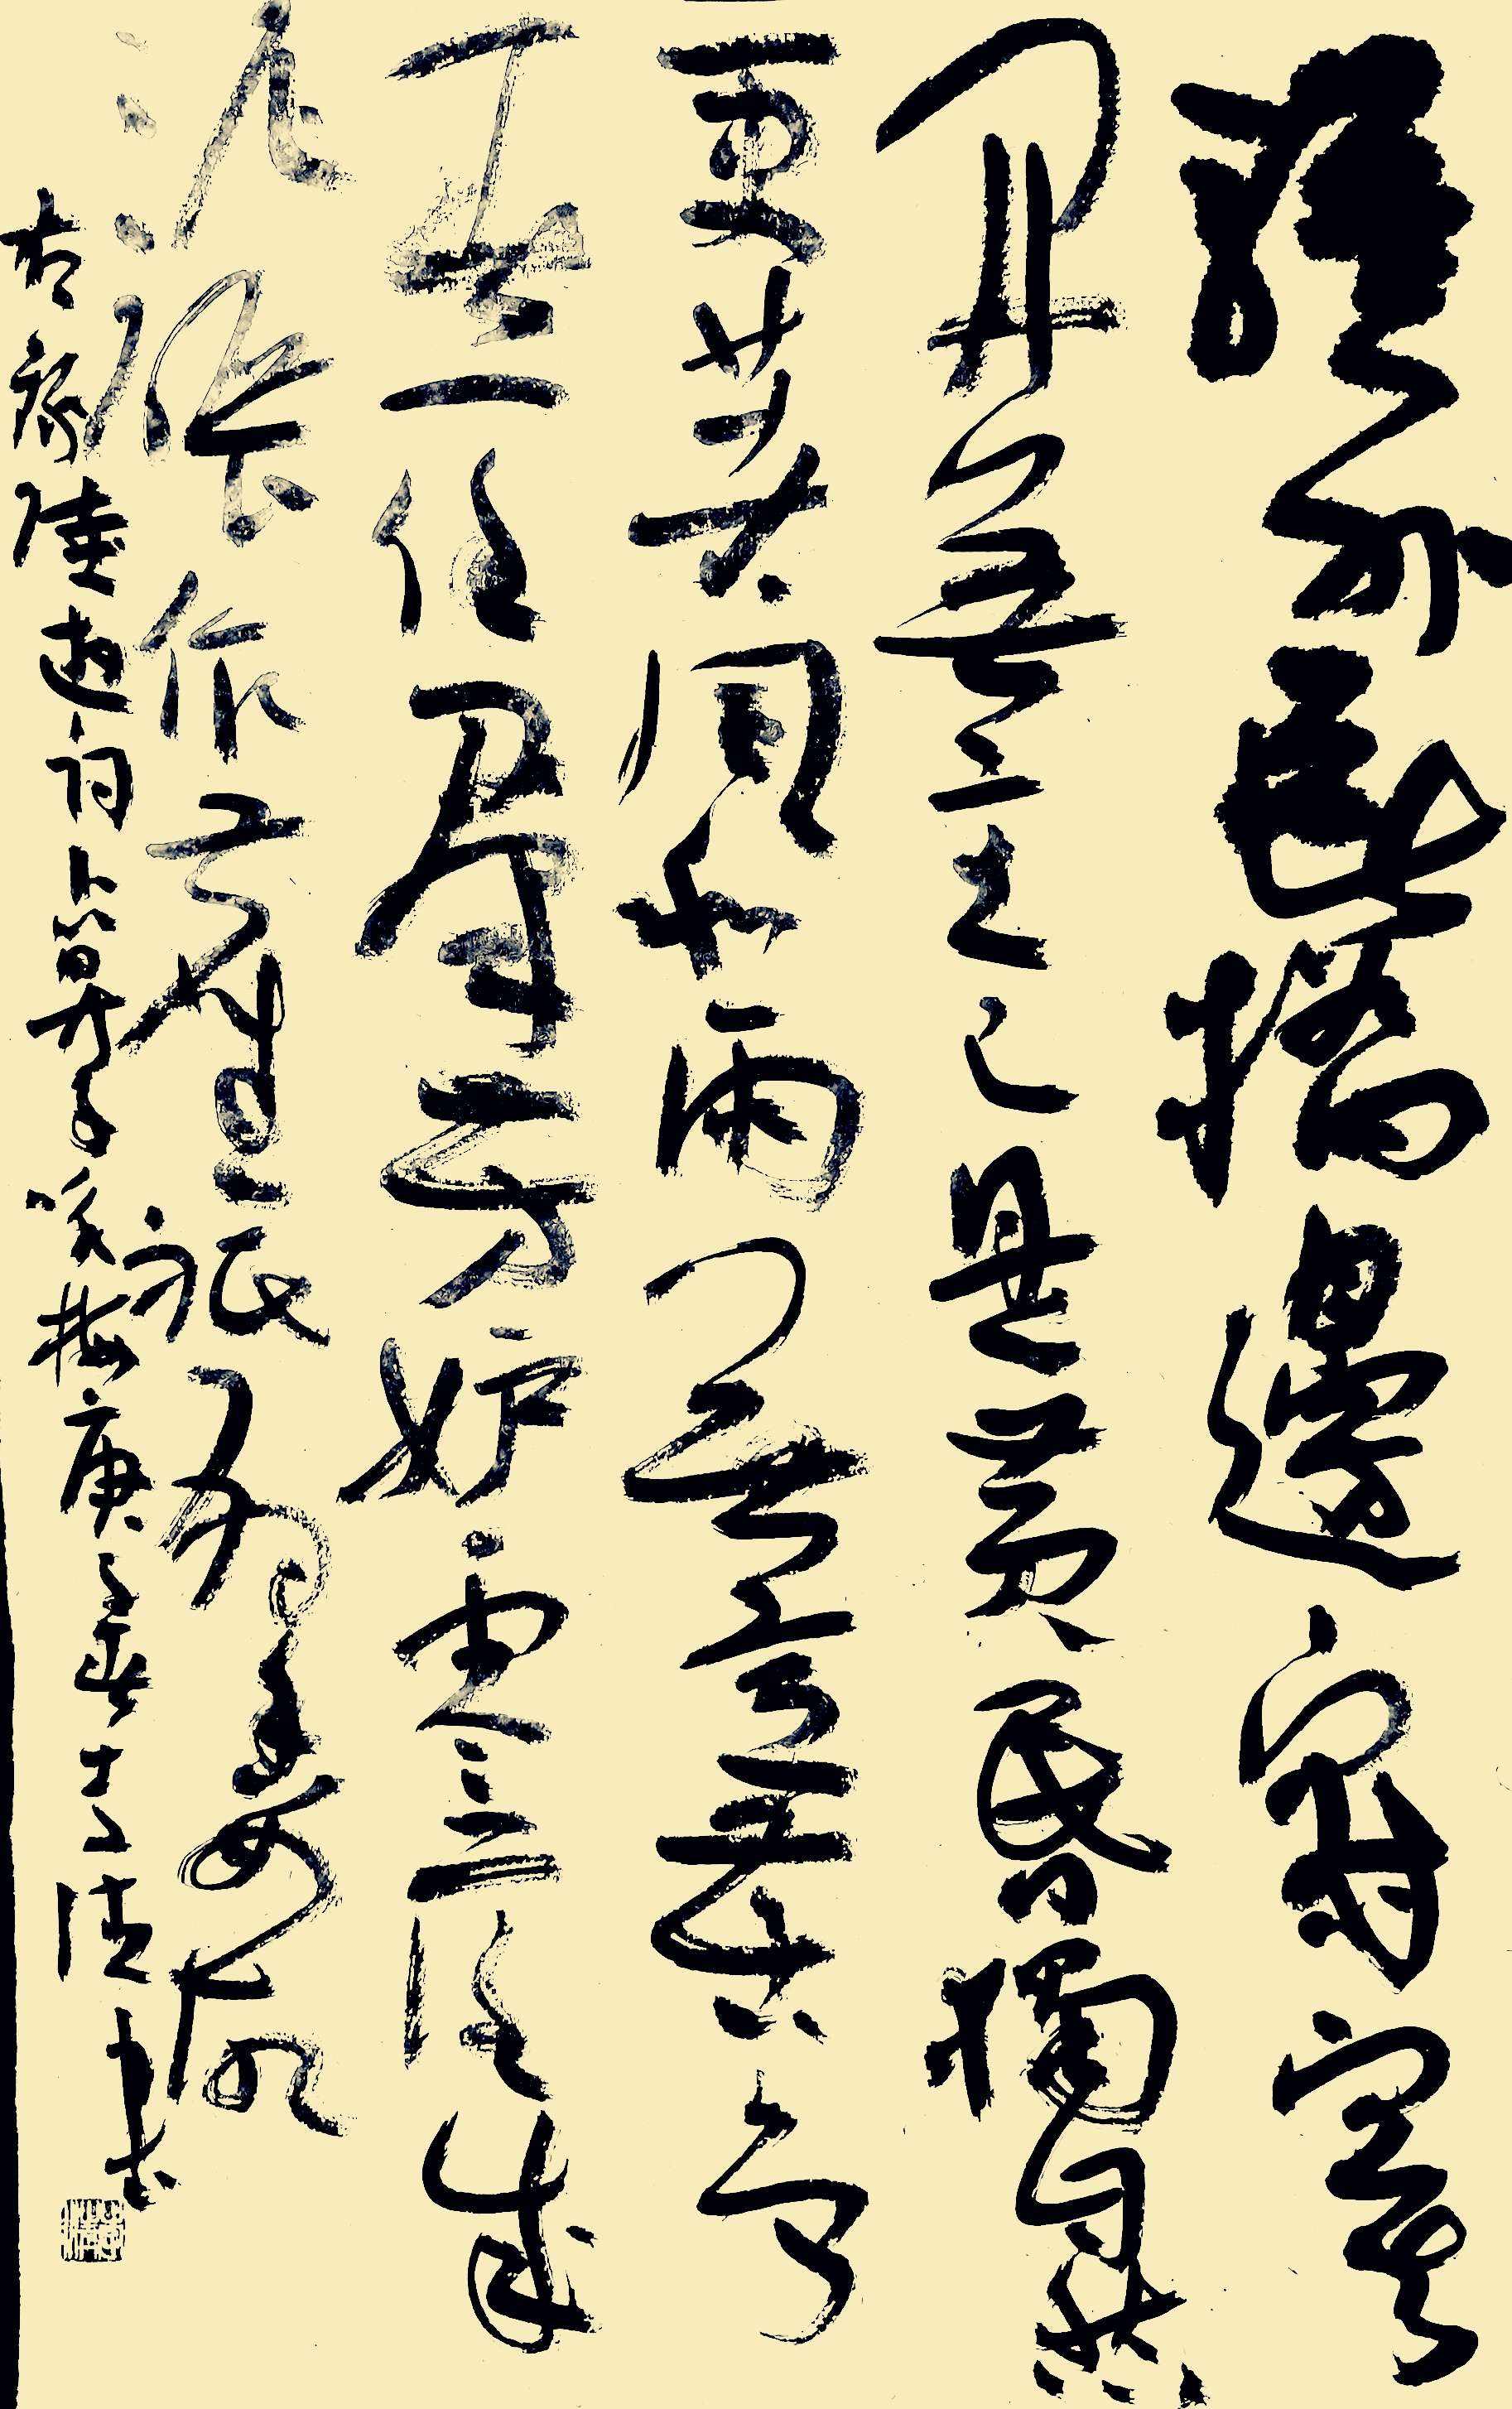 驛外斷橋邊寂寞
開無主已是黃昏獨自愁
更著風和雨無意苦爭
春一任群芳妒零落成
泥碾作塵只有香如故
右録陸游詞卜算子咏梅庚子春書